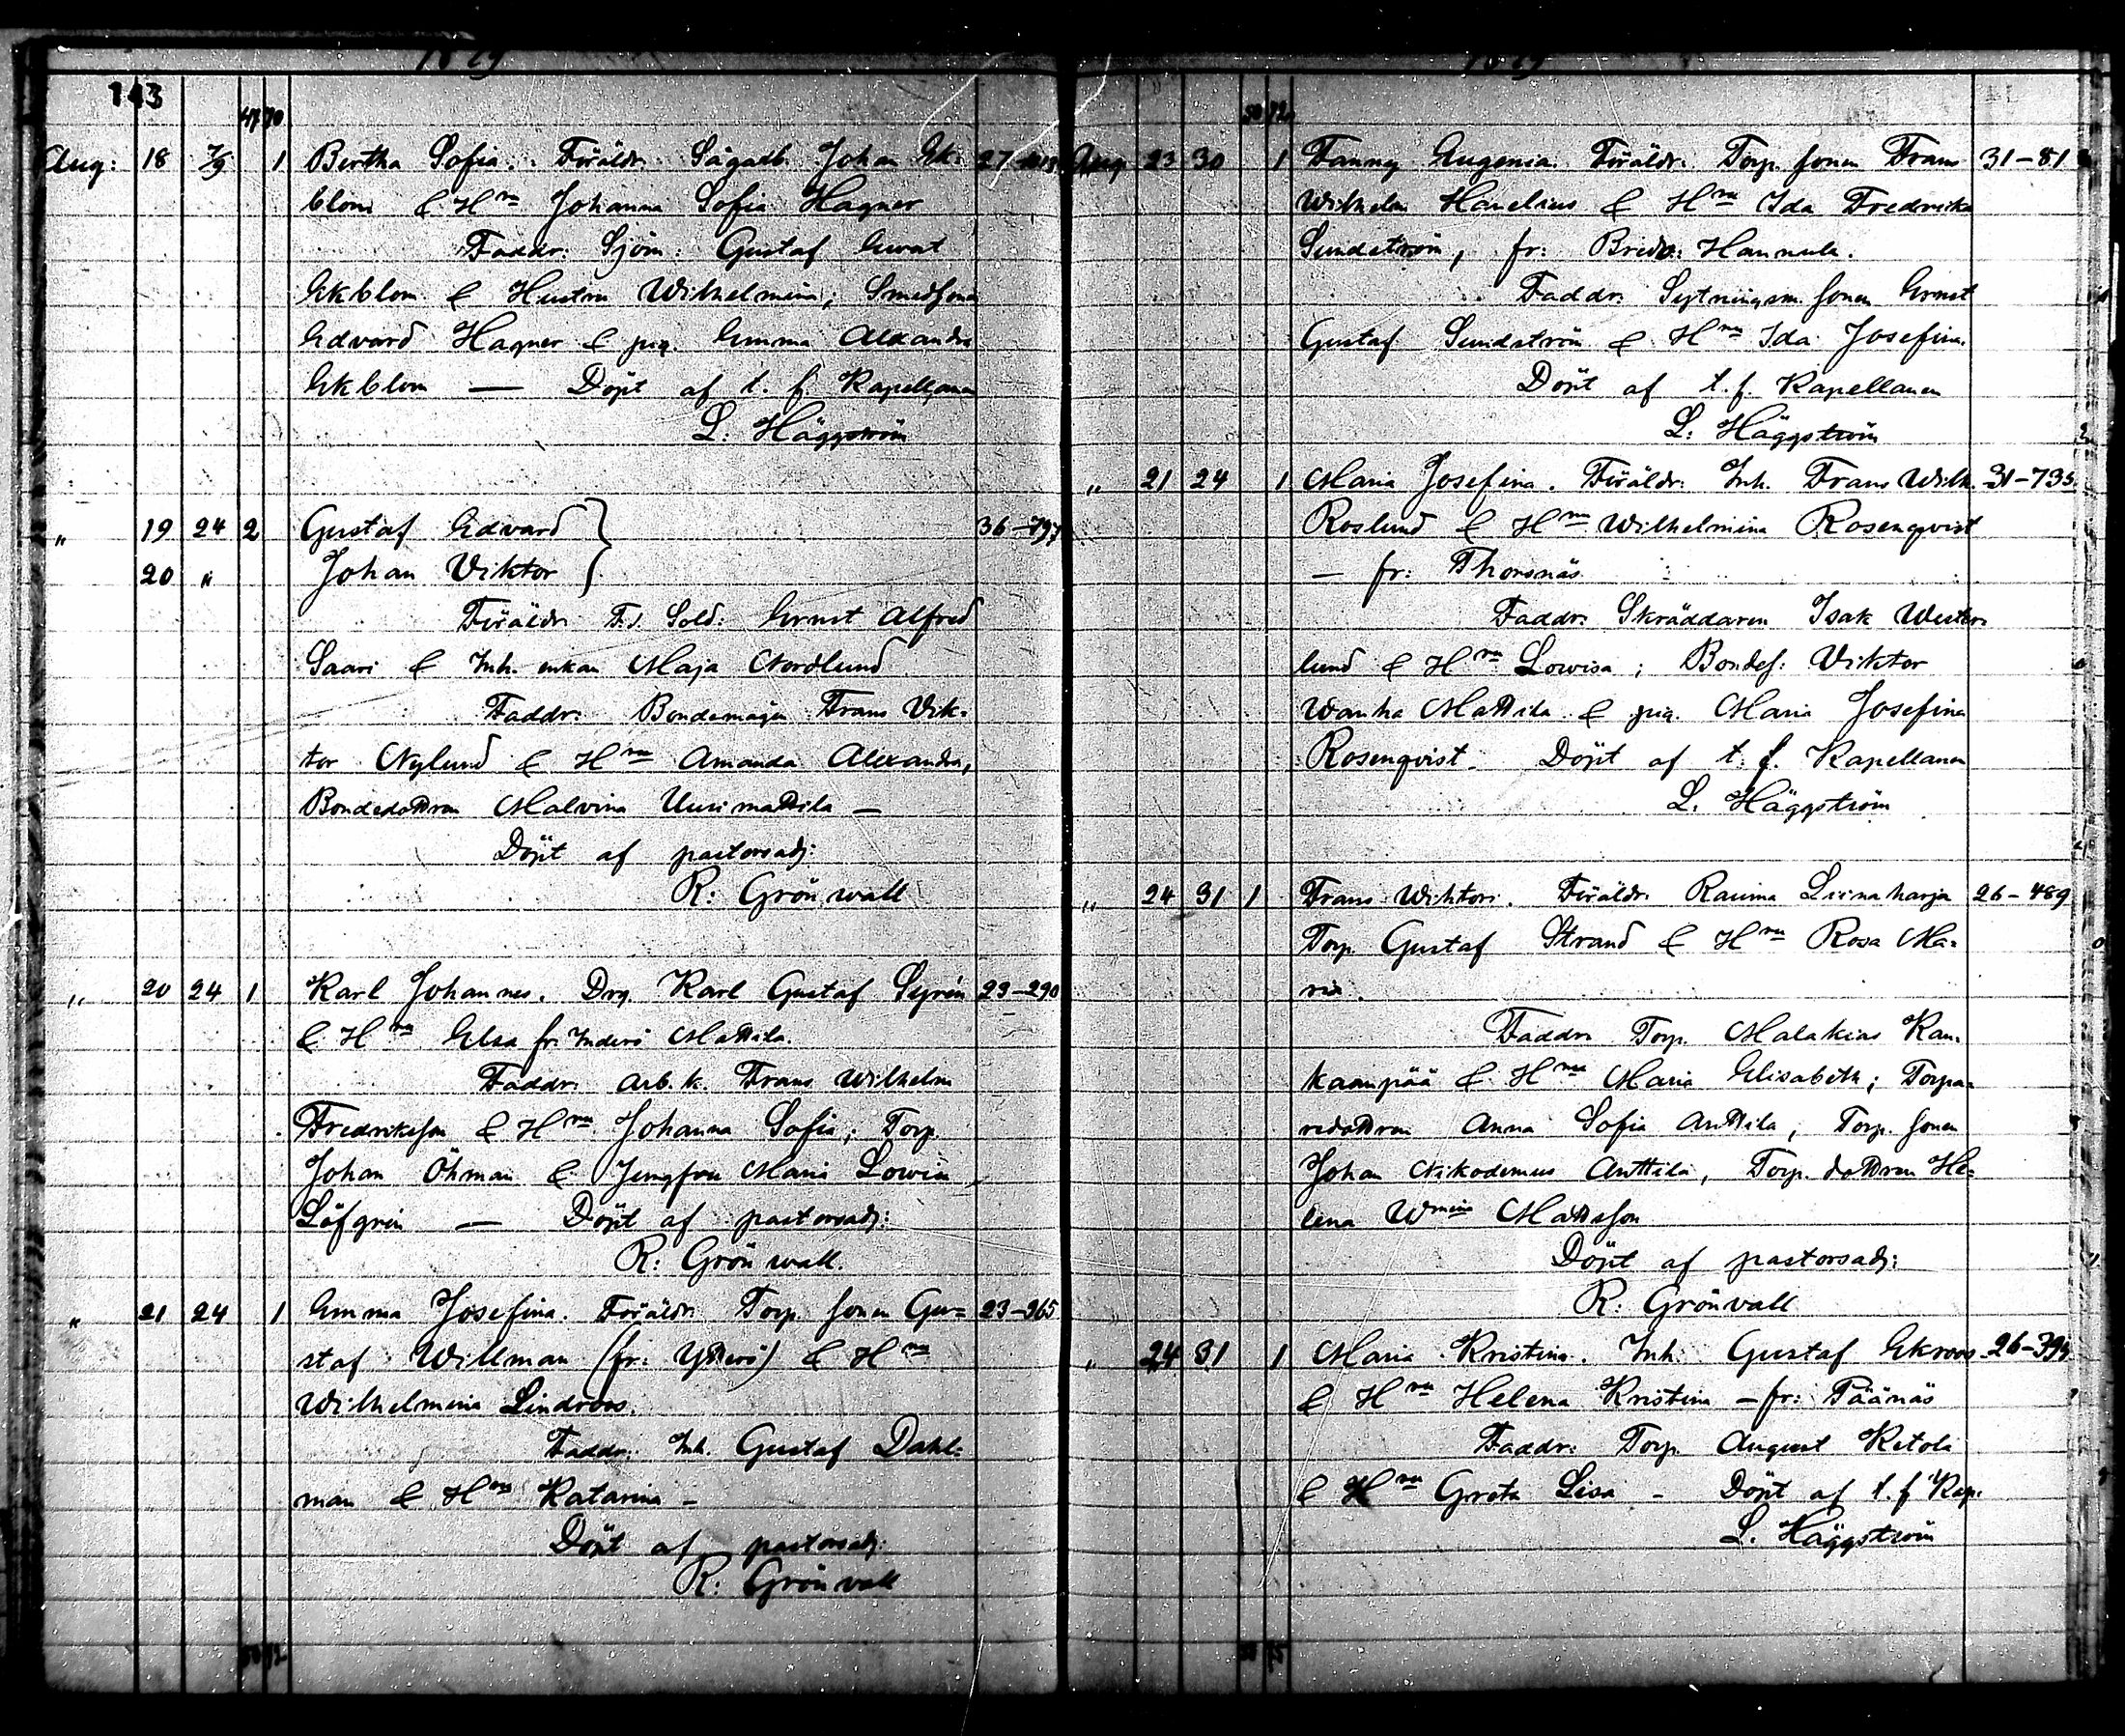 143
47 70
Aug: 18 7/9 1 Bertha Sofia. Föräldr. Sågarb. Johan Ek= 27
blom & Hru Johanna Sofia Hagner
Faddr: Sjöm: Gustaf Ewert
Ekblom & Hustru Wilhelmina, Smedsonen
Edvard Hagner & pig. Emma Alexandra
Ekblom — Döpt af t. f. Kapellanen
L: Häggström
„ 19 24 2 Gustaf Edvard } 36-797
20 „ Johan Viktor }
Föräldr. F.d. Sold: Ernst Alfred
Saari & Inh. enkan Maja Nordlund
Faddr: Bondemågen Frans Vik=
tor Nylund & Hru Amanda Alexandra,
Bondedottren Malvina Uusimattila —
Döpt af pastorsadj:
R: Grönwall
„ 20 24 1 Karl Johannes. Drg. Karl Gustaf Syrén 23-290
& Hru Elsa fr. Inderö Mattila.
Faddr. Arb.k. Frans Wilhelm
Fredriksson & Hru Johanna Sofia; Torp.
Johan Öhman & Jungfru Maria Lovisa
Löfgren — Döpt af pastorsadj:
R: Grönwall.
„ 21 24 1 Emma Josefina. Föräldr. Torp. sonen Gu= 23-365
staf Willman (fr: Ytterö) & Hru
Wilhelmina Lindroos.
Faddr: Inh. Gustaf Dahl=
man & Hru Katarina —
Döpt af pastorsadj:
R: Grönvall
50 72
Aug 23 30 1 Fanny Eugenia. Föräldr. Torp. sonen Frans 31-81
Wilhelm Hanelius & Hru Ida Fredrika
Sundström, fr: Bredv: Hannula.
Faddr. Sytningsm. sonen Ernst
Gustaf Sundström & Hru Ida Josefina.
Döpt af t. f. Kapellanen
L: Häggström
„ 21 24 1 Maria Josefina. Föräldr. Inh. Frans Wilh. 31-735
Roslund & Hru Wilhelmina Rosenqvist
— fr: Thorsnäs
Faddr. Skräddaren Isak Wester=
lund & Hru Lowisa; Bondes: Viktor
Wanha Mattila & pig. Maria Josefina
Rosenqvist. Döpt af t. f. Kapellanen
L. Häggström
„ 24 31 1 Frans Wiktor. Föräldr. Rauma Liinaharja 26-489
Torp. Gustaf Strand & Hru Rosa Ma=
ria.
Faddr. Torp. Malakias Kan=
kaanpää & Hru Maria Elisabeth; Torpa=
redottren Anna Sofia Anttila, Torp. sonen
Johan Nikodemus Anttila, Torp. dottren He=
lena Wmina Mattsson
Döpt af pastorsadj:
R: Grönvall
„ 24 31 1 Maria Kristina. Inh. Gustaf Ekroos 26-394
& Hru Helena Kristina — fr: Päänäs
Faddr: Torp. August Ketola
& Hru Greta Lisa — Döpt af t. f Kap.
L. Häggström